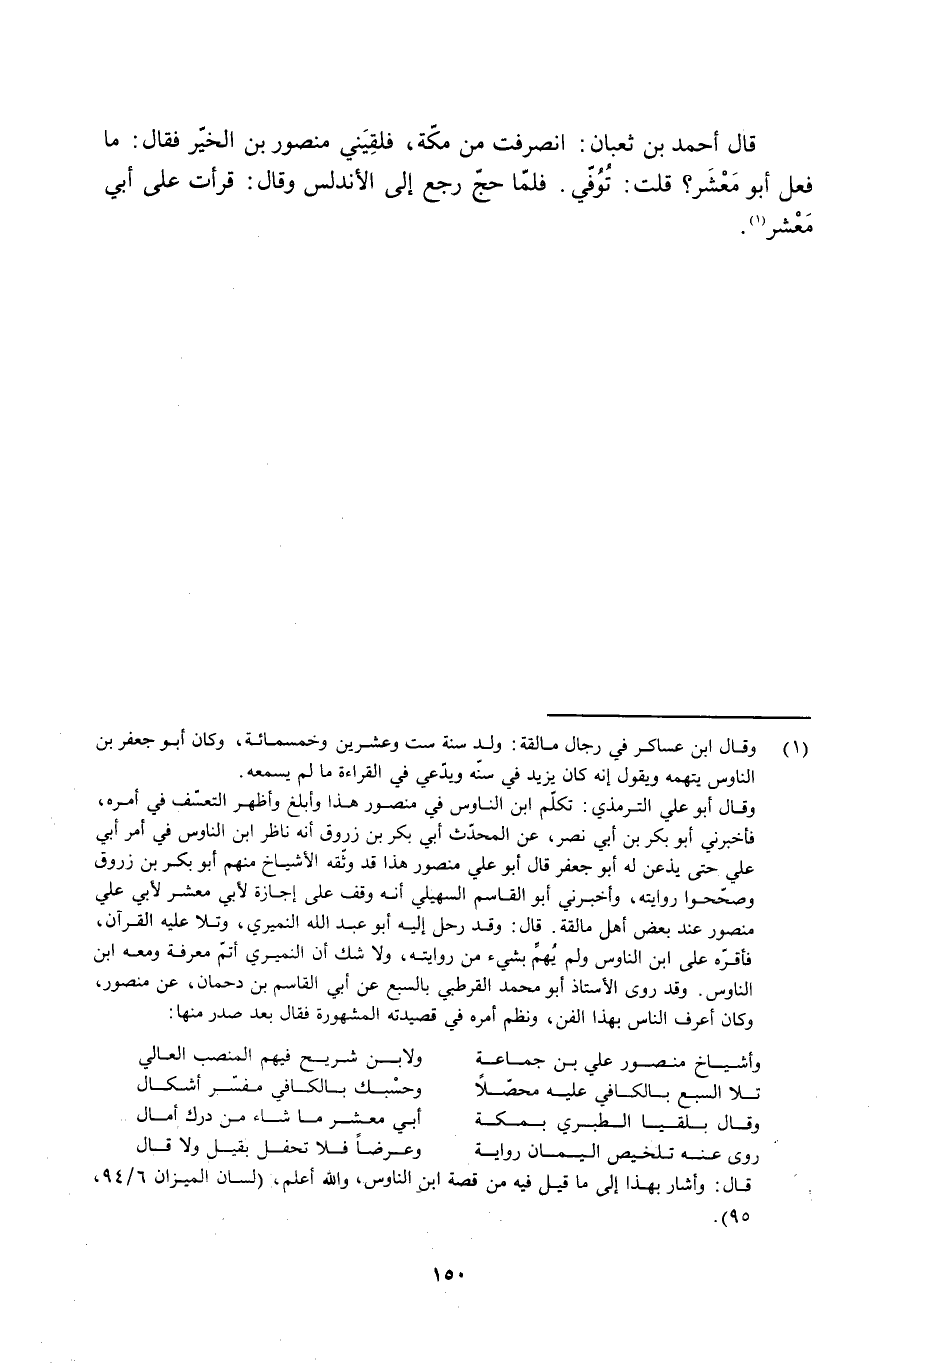 قال أحمد بن ثعبان: انصرفت من مكّة، فلقِيَني منصور بن الخيّر فقال: ما
فعل أبو مَعْشَر؟ قلت: تُوُفّي. فلمّا حجّ رجع إلى الأندلس وقال: قرأت على أبي
مَعْشر(١).
(١) وقال ابن عساكر في رجال مالقة: ولد سنة ست وعشرين وخمسمائة، وكان أبو جعفر بن
الناوس يتهمه ويقول إنه كان يزيد في سنّه ويدّعي في القراءة ما لم يسمعه.
وقال أبو علي الترمذي: تكلّم ابن الناوس في منصور هذا وأبلغ وأظهر التعسّف في أمره،
فأخبرني أبو بكر بن أبي نصر، عن المحدّث أبي بكر بن زروق أنه ناظر ابن الناوس في أمر أبي
علي حتى يذعن له أبو جعفر قال أبو علي منصور هذا قد وثّقه الأشياخ منهم أبو بكر بن زروق
وصحّحوا روايته، وأخبرني أبو القاسم السهيلي أنه وقف على إجازة لأبي معشر لأبي علي
منصور عند بعض أهل مالقة. قال: وقد رحل إليه أبو عبد الله النميري، وتلا عليه القرآن،
فأقرّه على ابن الناوس ولم يُهمَّ بشيء من روايته، ولا شك أن النميري أتمّ معرفة ومعه ابن
الناوس. وقد روى الأستاذ أبو محمد القرطبي بالسبع عن أبي القاسم بن دحمان، عن منصور،
وكان أعرف الناس بهذا الفن، ونظم أمره في قصيدته المشهورة فقال بعد صدر منها:
وأشياخ منصور علي بن جماعة ولابن شريح فيهم المنصب العالي
تلا السبع بالكافي عليه محصّلاً وحسْبك بالكافي مفسّر أشكال
وقال بلقيا الطبري بمكة أبي معشر ما شاء من درك أمال
روى عنه تلخيص اليمان رواية وعرضاً فلا تحفل بقيل ولا قال
قال: وأشار بهذا إلى ما قيل فيه من قصة ابن الناوس، والله أعلم، (لسان الميزان ٩٤/٦،
٩٥).
١٥٠